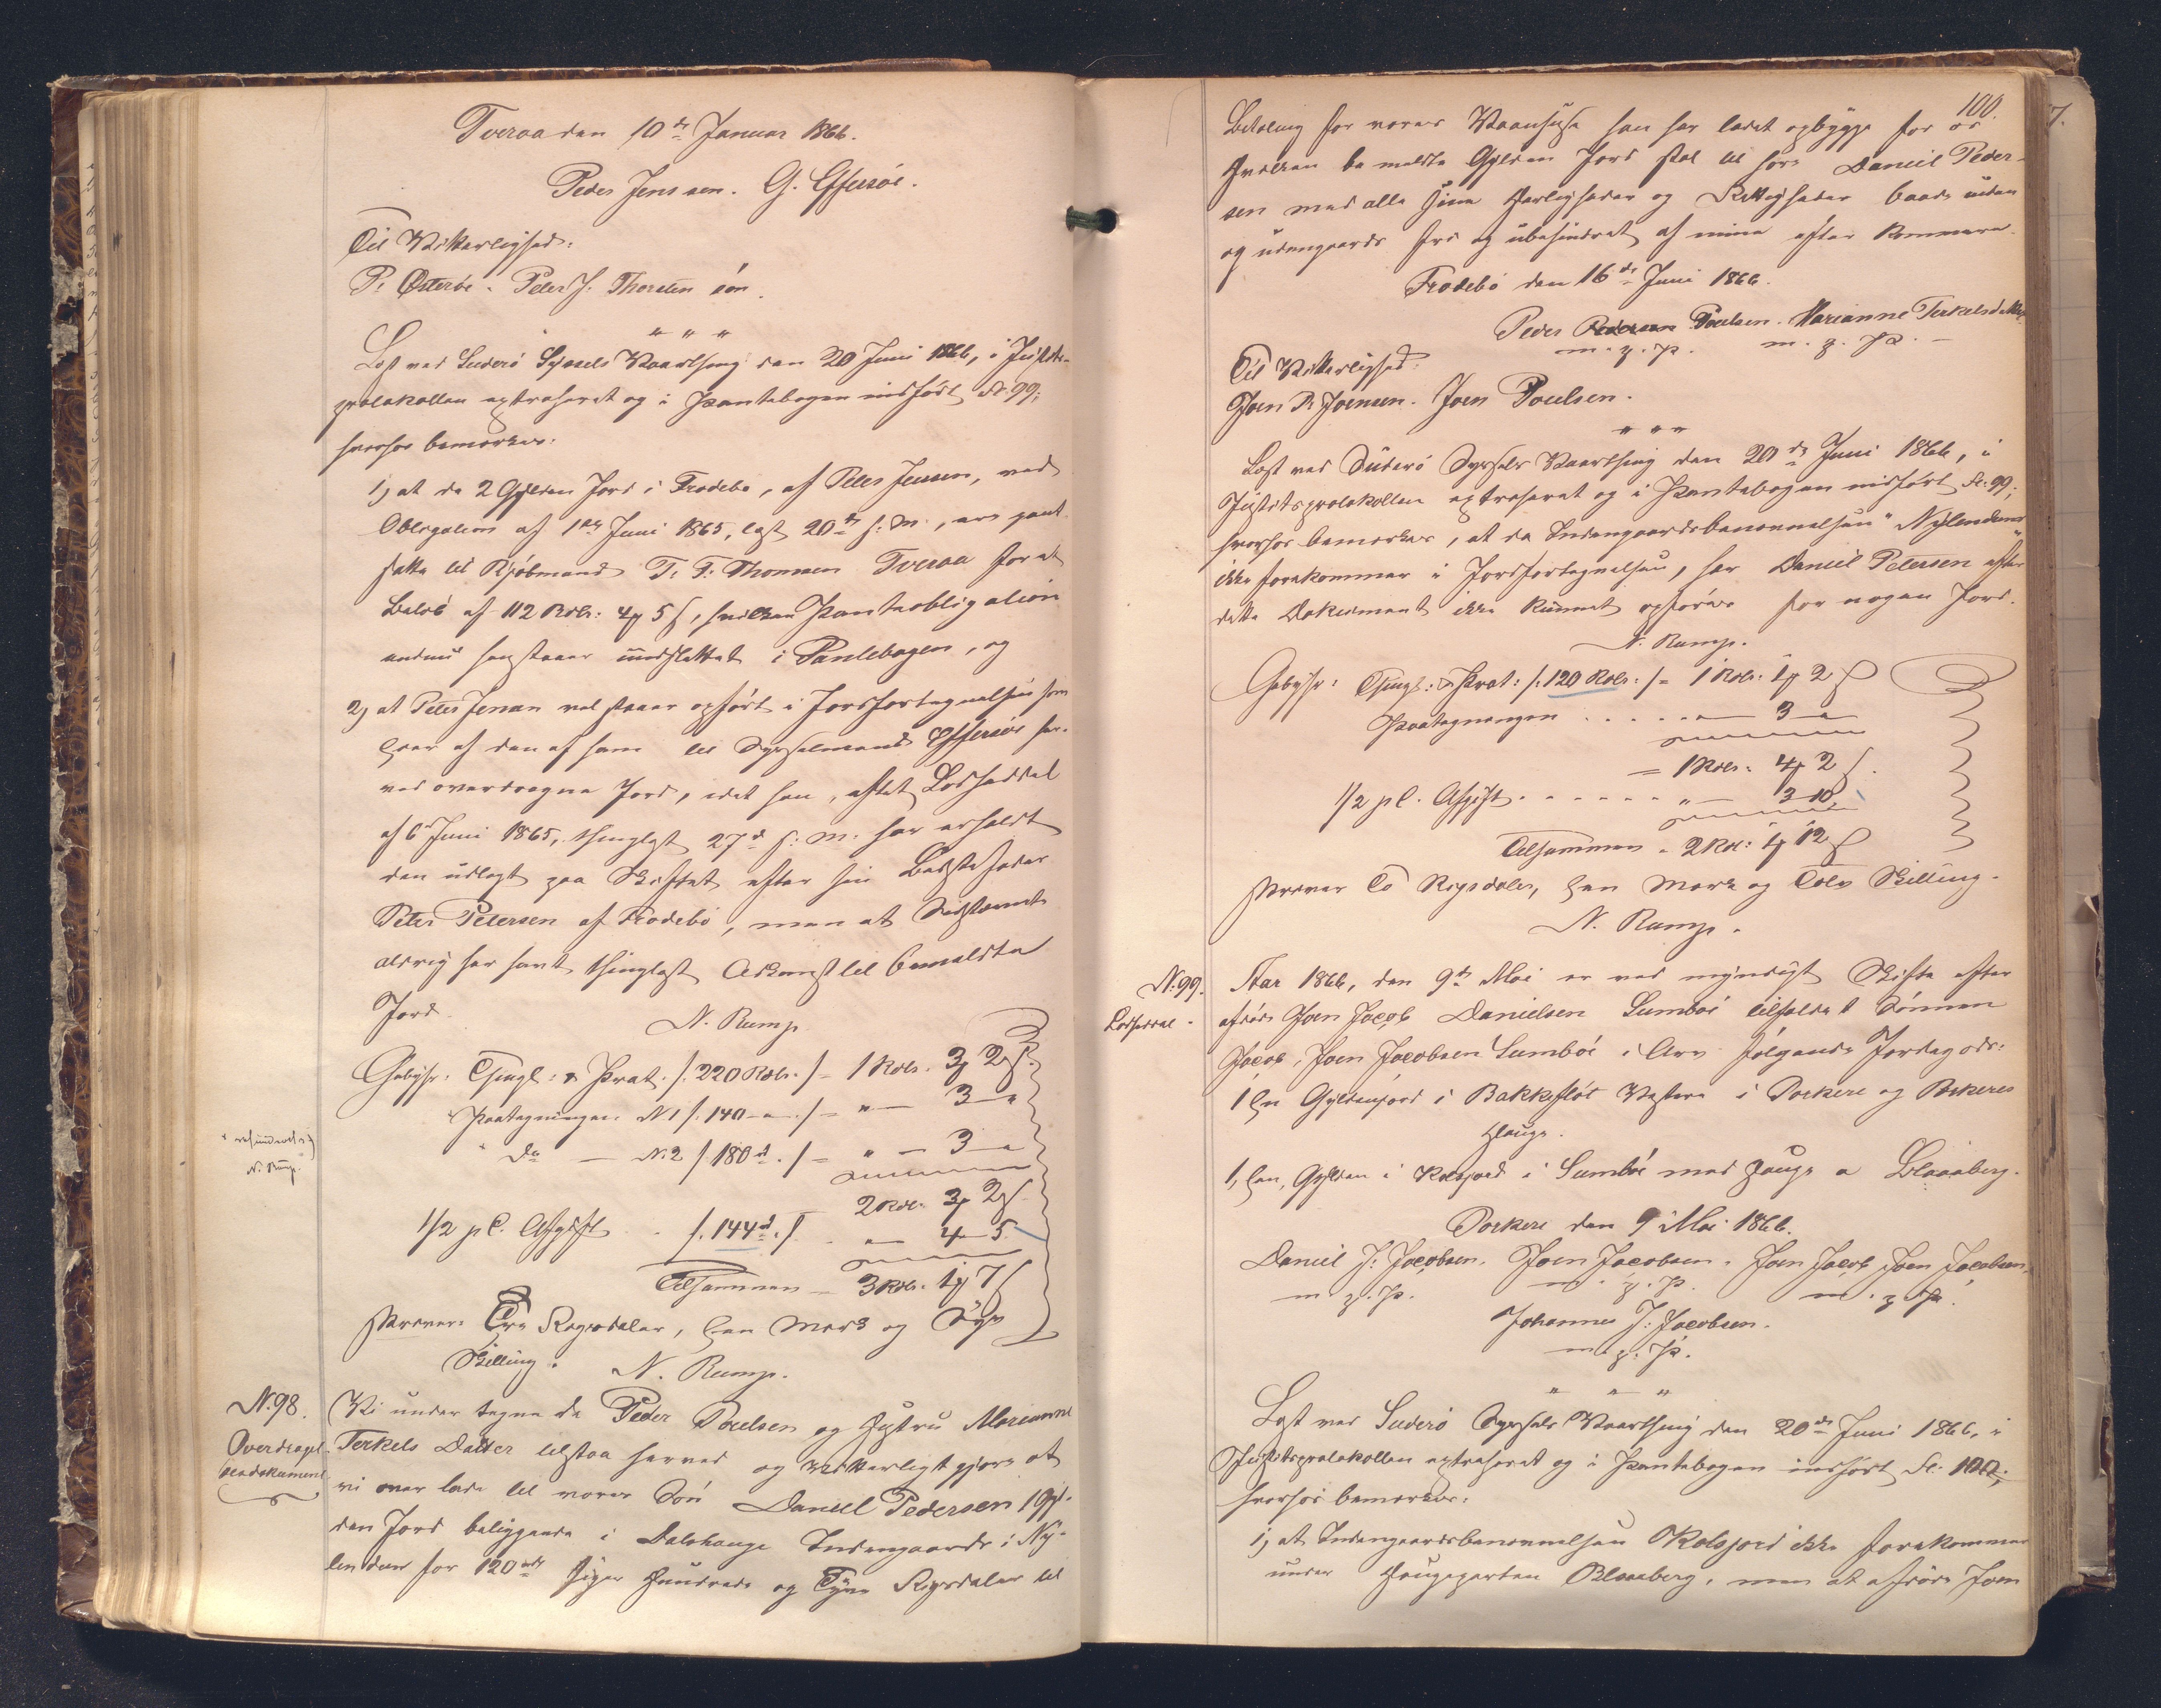 Tveraa den 10de Januar 1866.
Peder Jenssen. G. Effersöe.
Til Vitterlighed:
P. Österbö. Peter J. Thorsteinsön.
" " "
Læst ved Suderö Syssels Vaarthing den 20 Juni 1866, i Justits-
protokollen extraheret og i Pantebogen indført Fol. 99;
hvorhos bemærkes:
1) at de 2 Gylden Jord i Frodebø, af Peter Jensen, ved
Obligation af 1ste Juni 1865, læst 20de s: M:, ere pant-
satte til Kjøbmand T. F. Thomsen Tveraa for et
Beløb af 112 Rdlr: 4 ₻ 5 ß, hvilken Panteobligation
endnu henstaaer uudslettet i Pantebogen, og
2) at Peter Jensen vel staaer opført i Jordfortegnelsen som
Eier af den af ham til Sysselmand Effersøe her-
ved overdragne Jord, idet han, efter Lodseddel
af 6 Juni 1865, thinglæst 27d s: M: har erholdt
den udlagt paa Skiftet efter sin Bedstefader
Peter Petersen af Frodebö, men at Sidstnævnte
aldrig har havt thinglæst Adkomst til bemeldte
Jord.
N. Rump
Gebyhr: Thingl: & Prot. /: 220 Rdlr. :/ = 1 Rdlr. 3 ₻ 2 ß.
Paategningen N1 /: 140 - " - :/ = " - 3 - "
* Do - N.2 /: 180 d :/ = " - 3 - "
* refunderes
N. Rump
2 Rdl. 3 ₻ 2 ß
1/2 pC. Afgift . /: 144 d :/ . " - 4 - 5
Tilsammen - 3 Rdlr. 1 ₻ 7 ß
skriver: Tre Rigsdaler, Een Mark og Syv
Skilling. N. Rump.
N.98.
Overdragel-
sesdokument
Vi under tegne de Peder Poulsen og Hustru Marianne
Terkels Datter tilstaa herved og vitterligt gjøre at
vi over lade til vores Søn Daniel Pedersen 1 Gyl-
den Jord beliggende i Dalshauge Indengaards i Ny-
lendum for 120 siger Hundrede og Tyve Rigsdaler til
100.
Betaling for vores Vaanhuse han har ladet opbygge for os
hvilken be meldte Gylden Jord skal til høre Daniel Peder-
sen med alle sine Herligheder og Rettigheder baade inden
og udengaards frit og ubehindret af mine efter kommere.
Frodebö den 16de Juni 1866.
Peder Pedersen Poulsen. Marianne Terkelsdatter
m. p. P. m. p. P.
Til Vitterlighed:
Joen P. Joensen. Joen Poulsen.
" " "
Læst ved Suderö Syssels Vaarthing den 20de Juni 1866, i
Justitsprotokollen extraheret og i Pantebogen indført Fol: 99;
hvorhos bemærkes, at da Indengaardsbenævnelsen "Nylendum"
ikke forekommer i Jordfortegnelsen, har Daniel Petersen efter
dette Dokument ikke kunnet opføres for nogen Jord.
N. Rump.
Gebyhr: Thingl: & Prot: /: 120 Rdlr. :/ = 1 Rdlr. 1 ₻ 2 ß
Paategningen . . . . . - 3 - "
= 1 Rdlr. 4 ₻ 2 ß.
1/2 pC. Afgift . . . . . . " - 3 - 10
Tilsammen = 2 Rdl: 1 ₻ 12 ß
skriver To Rigsdaler, Een Mark og Tolv Skilling.
N. Rump.
N.99.
Lodseddel.
Aar 1866, den 9de Mai er ved myndigt Skifte efter
afdøde Joen Jacob Danielsen Sumböe tilfaldet Sönnen
Jacob Joen Jacobsen Sumböe i Arv følgende Jordegods:
1 Een Gyldenjord i Bakkefløt Vestere i Porkere og Porkeres
Hauge.
1, Een, Gylden i Kolsjord i Sumböe med Hauge a Blaaberg.
Porkere den 9 Mai 1866.
Daniel J. Jacobsen. Joen Jacobsen. Joen Jacob Joen Jacobsen.
m. p. P. m. p. P. m. p. P.
Johannes J. Jacobsen.
m. p. P.
" " "
Læst ved Suderö Syssels Vaarthing den 20de Juni 1866, i
Justitsprotokollen extraheret og i Pantebogen indført Fol: 100;
hvorhos bemærkes:
1) at Indengaardsbenævnelsen Kolsjord ikke forekommer
under Haugeparten Blaaberg, men at afdøde Joen